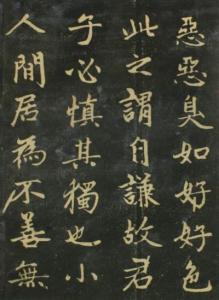 惡惡臭如好好色
此之謂自謙故君
子必慎其獨也小
人閒居為不善無